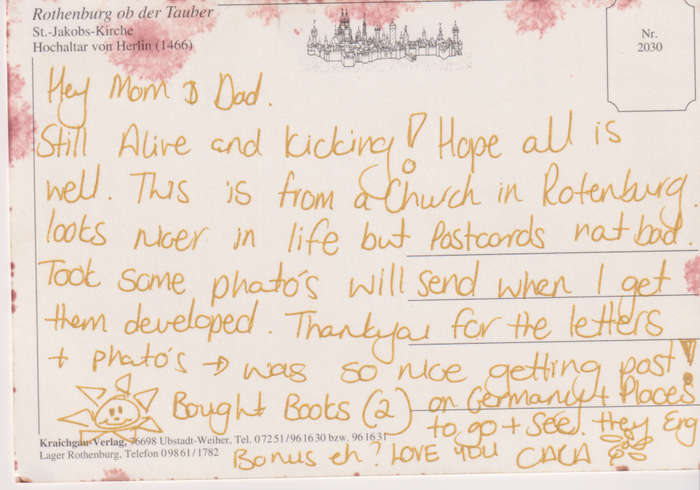 Rothenburg ob der Tauber
St.-Jakobs-Kirche
Hochaltar von Herlin (1466)
Nr.
2030
Hey Mom & Dad.
Still Alive and kicking! Hope all is
well. This is from a Church in Rotenburg.
looks nicer in life but Postcards not bad.
Took some photo's will send when I get
them developed. Thankyou for the letters
+ photo's → was so nice getting post!
Bought Books (2) on Germany + Places
to go + see. they Eng
Bonus eh? LOVE YOU
Kraichgau-Verlag, 76698 Ubstadt-Weiher, Tel. 07251/961630 bzw. 961631
Lager Rothenburg, Telefon 09861/1782